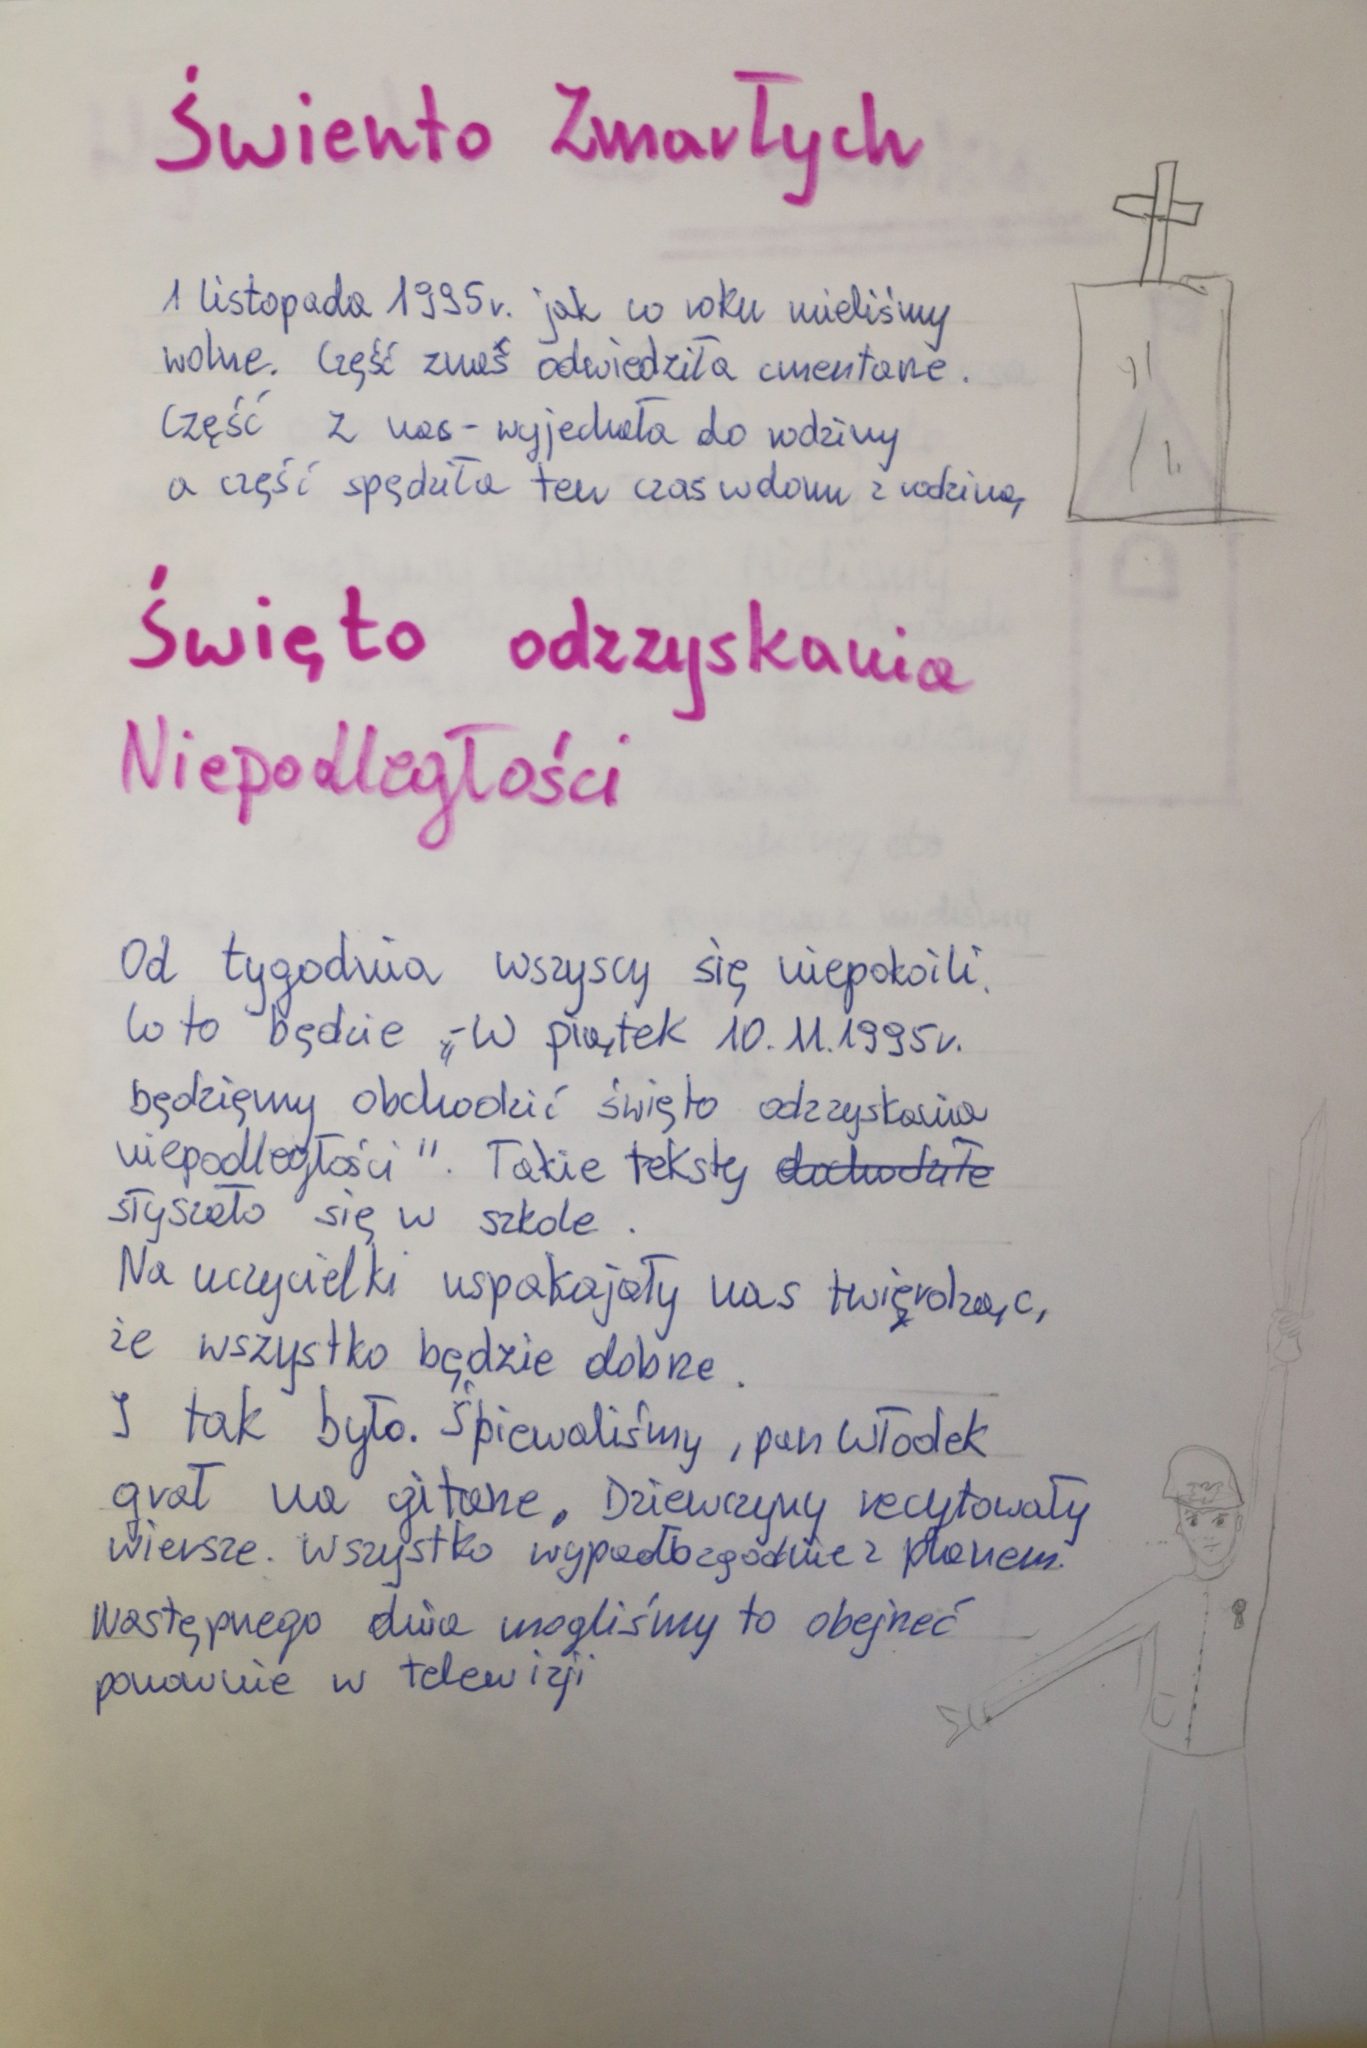 Świento Zmarłych
1 listopada 1995r. jak co roku mieliśmy
wolne. Część znaś odwiedziła cmentarze.
Część z nas - wyjechała do rodziny
a część spędziła ten czas wdomu z rodziną
Święto odzzyskania
Niepodległości
Od tygodnia wszyscy się niepokoili.
Co to będzie „-W piątek 10.11.1995r.
będzięmy obchodzić święto odzzyskania
niepodległości". Takie teksty dochodziłe
słyszało się w szkole.
Na uczycielki uspakajały nas twięrdząc,
że wszystko będzie dobrze.
I tak było. Śpiewaliśmy, pan Włodek
grał na gitarze. Dziewczyny recytowały
wiersze. Wszystko wypadło zgodnie z planem.
Następnego dnia mogliśmy to obejrzeć
ponownie w telewizji